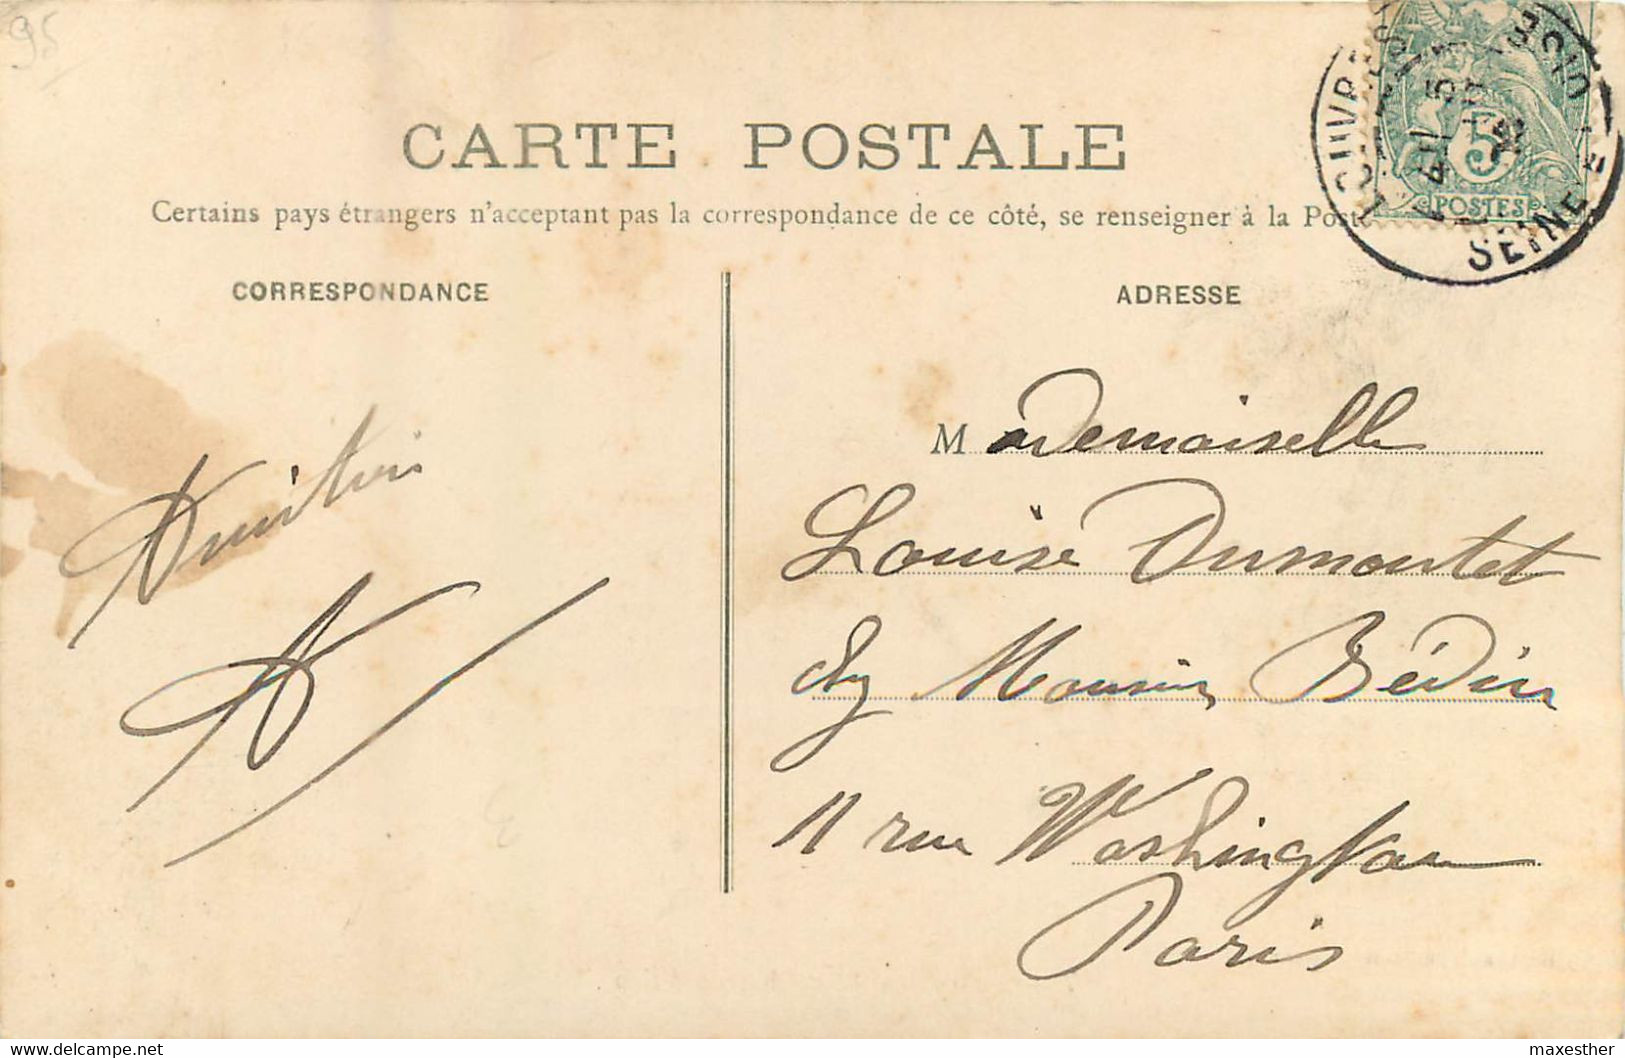 95
CARTE POSTALE
Certains pays étrangers n'acceptant pas la correspondance de ce côté, se renseigner à la Post
CORRESPONDANCE
ADRESSE
LOUVRES
SEINE-ET-OISE
5
POSTES
Mademoiselle
Louise Dumontet
chez Monsieur Bédier
11 rue Washington
Paris
www.delcampe.net
maxesther